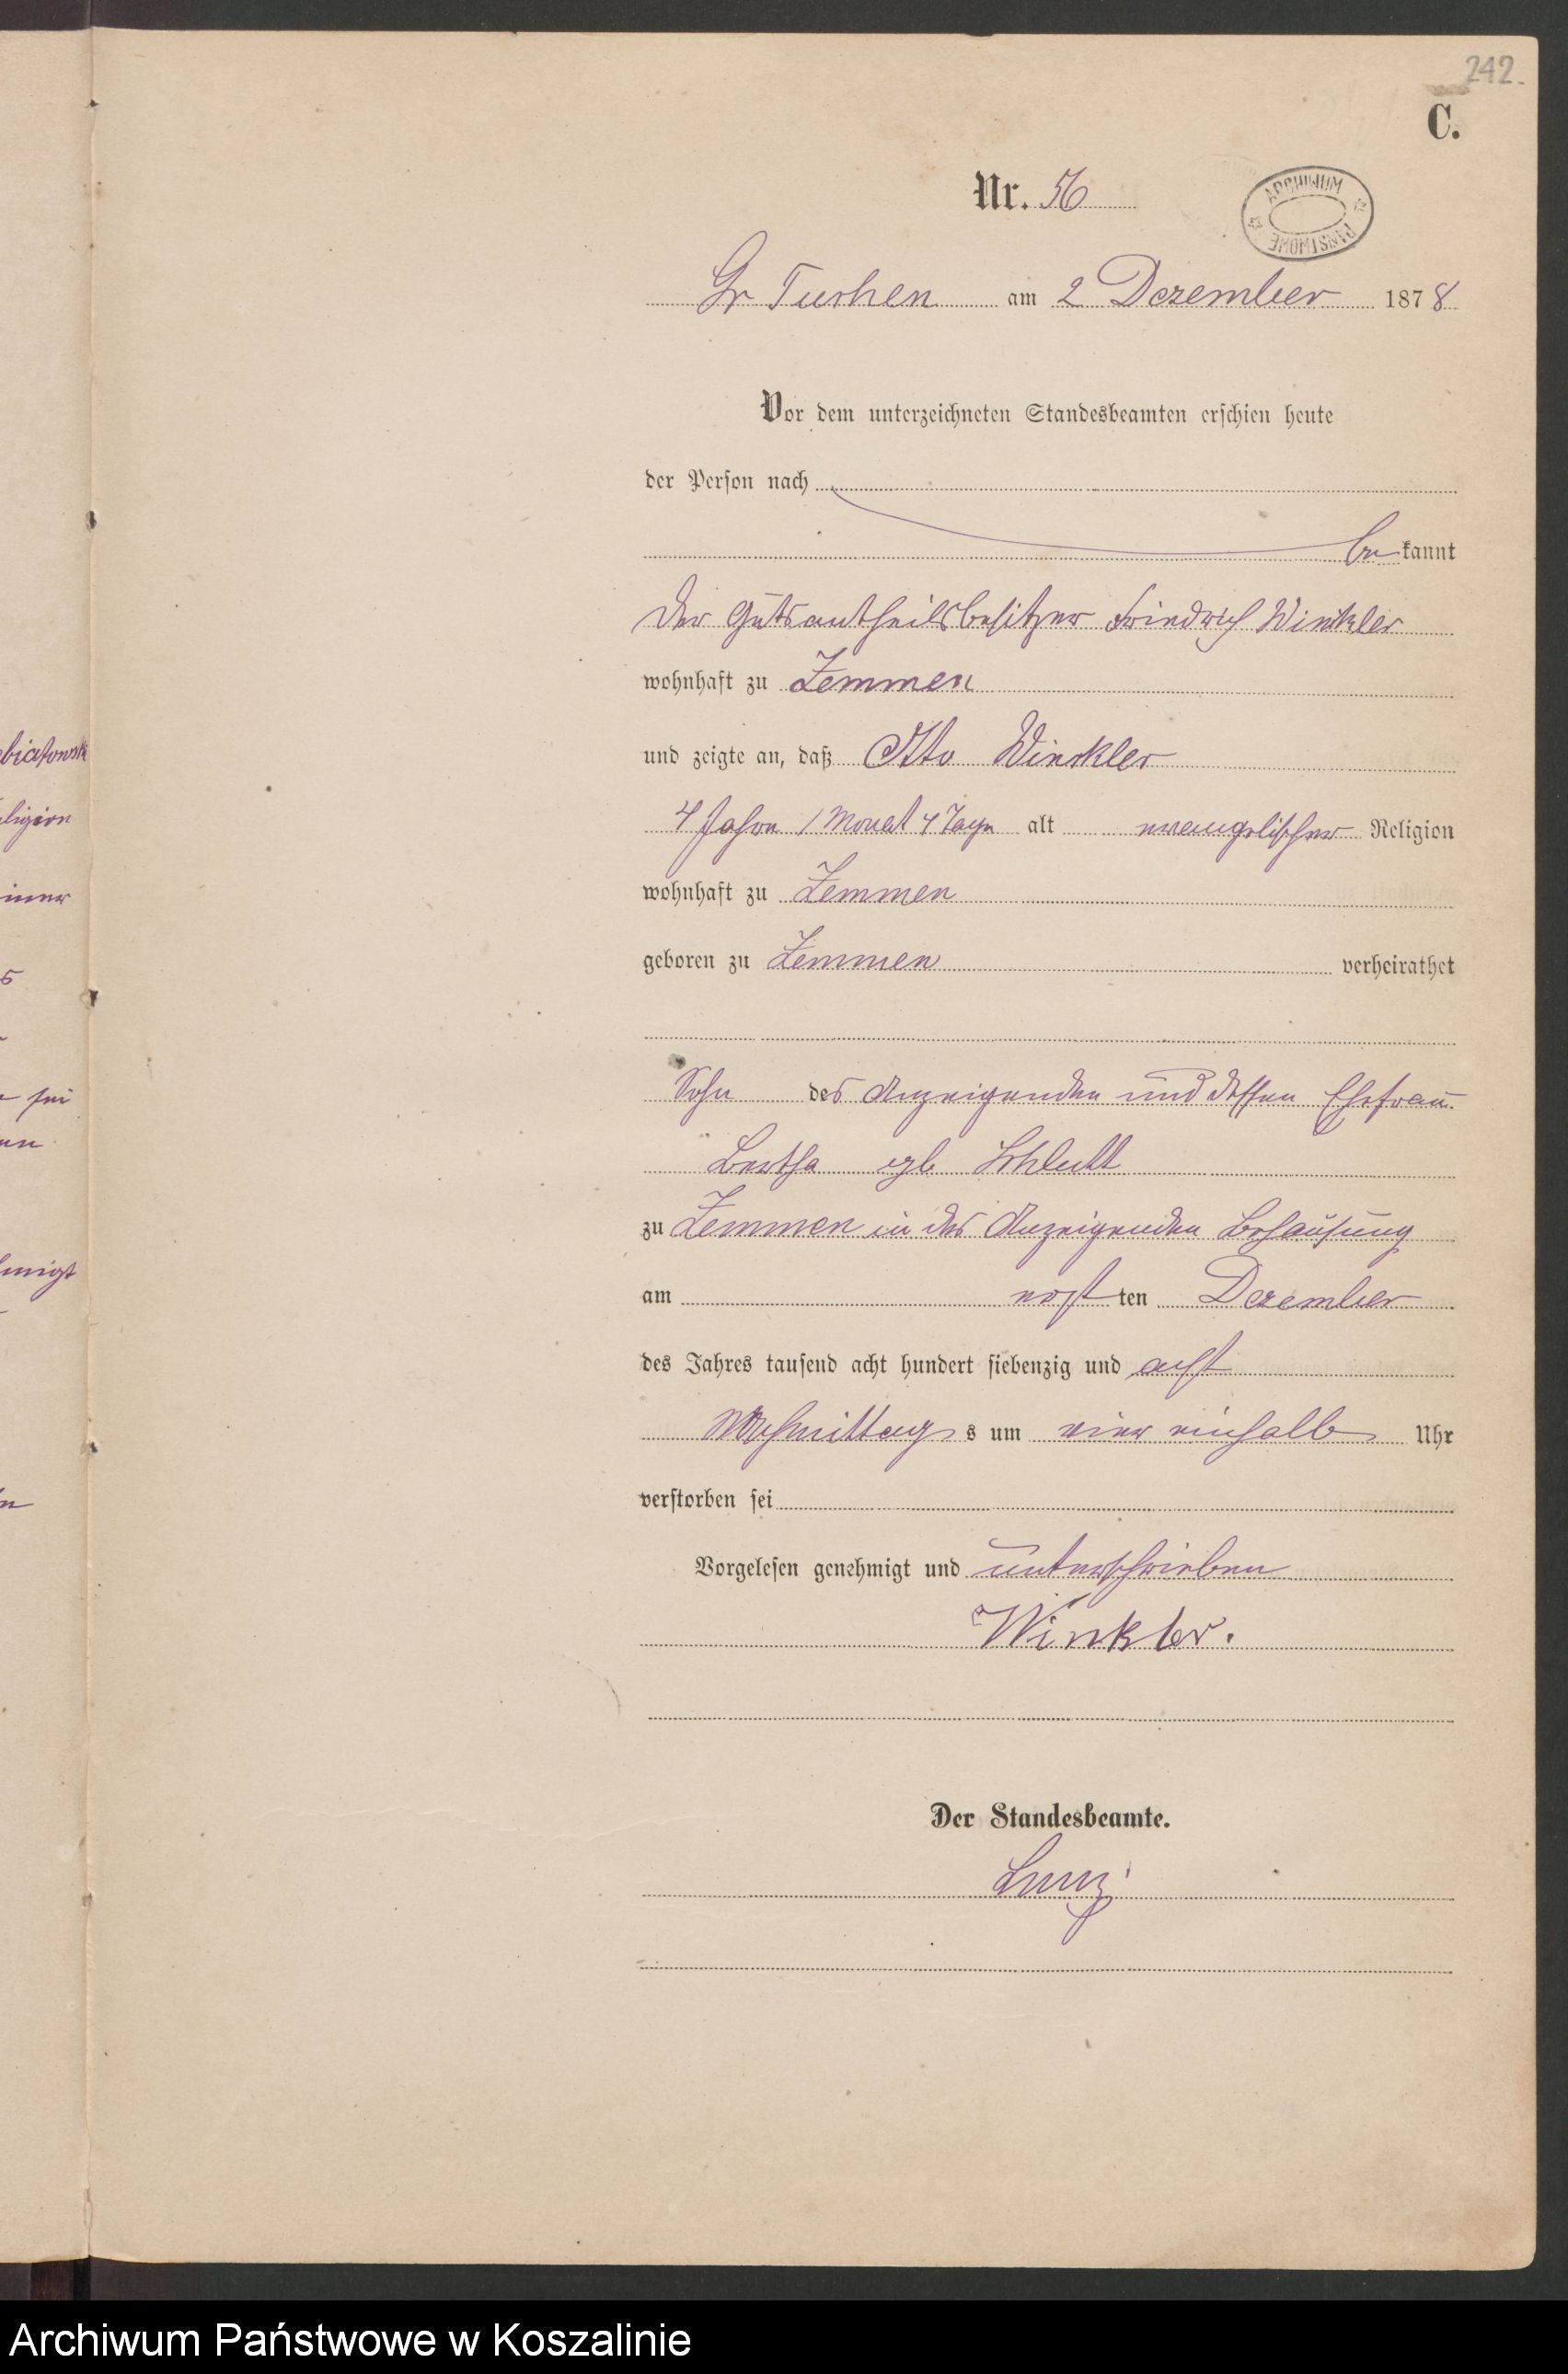 242.
C.
Nr. 56
ARCHIWUM PAŃSTWOWE
Gr Tuchen am 2 Dezember 1878
Vor dem unterzeichneten Standesbeamten erschien heute
der Person nach
bekannt
der Gutsantheilsbesitzer Friedrich Winkler
wohnhaft zu Zemmen
und zeigte an, daß Otto Winkler
4 Jahre 1 Monat 4 Tage alt evangelischer Religion
wohnhaft zu Zemmen
geboren zu Zemmen verheirathet
Sohn des Anzeigenden und dessen Ehefrau
Bertha geb
zu Zemmen in des Anzeigenden Behausung
am ersten Dezember
des Jahres tausend acht hundert siebenzig und acht
Nachmittags um vier einhalb Uhr
verstorben sei
Vorgelesen genehmigt und unterschrieben
Winkler.
Der Standesbeamte.
ligion
5
sei
migt
Archiwum Państwowe w Koszalinie